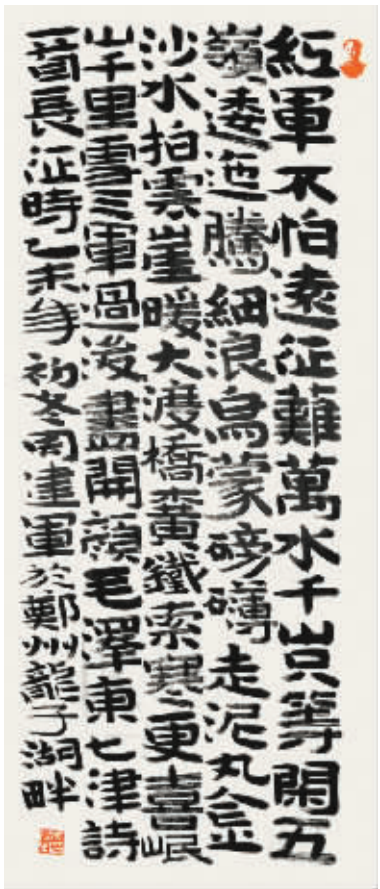 紅軍不怕遠征難萬水千山只等閑五
嶺逶迤騰細浪烏蒙磅礴走泥丸金
沙水拍雲崖暖大渡橋橫鐵索寒更喜岷
山千里雪三軍過後盡開顏毛澤東七律詩
一首長征時乙未年初冬周建軍於鄭州龍子湖畔